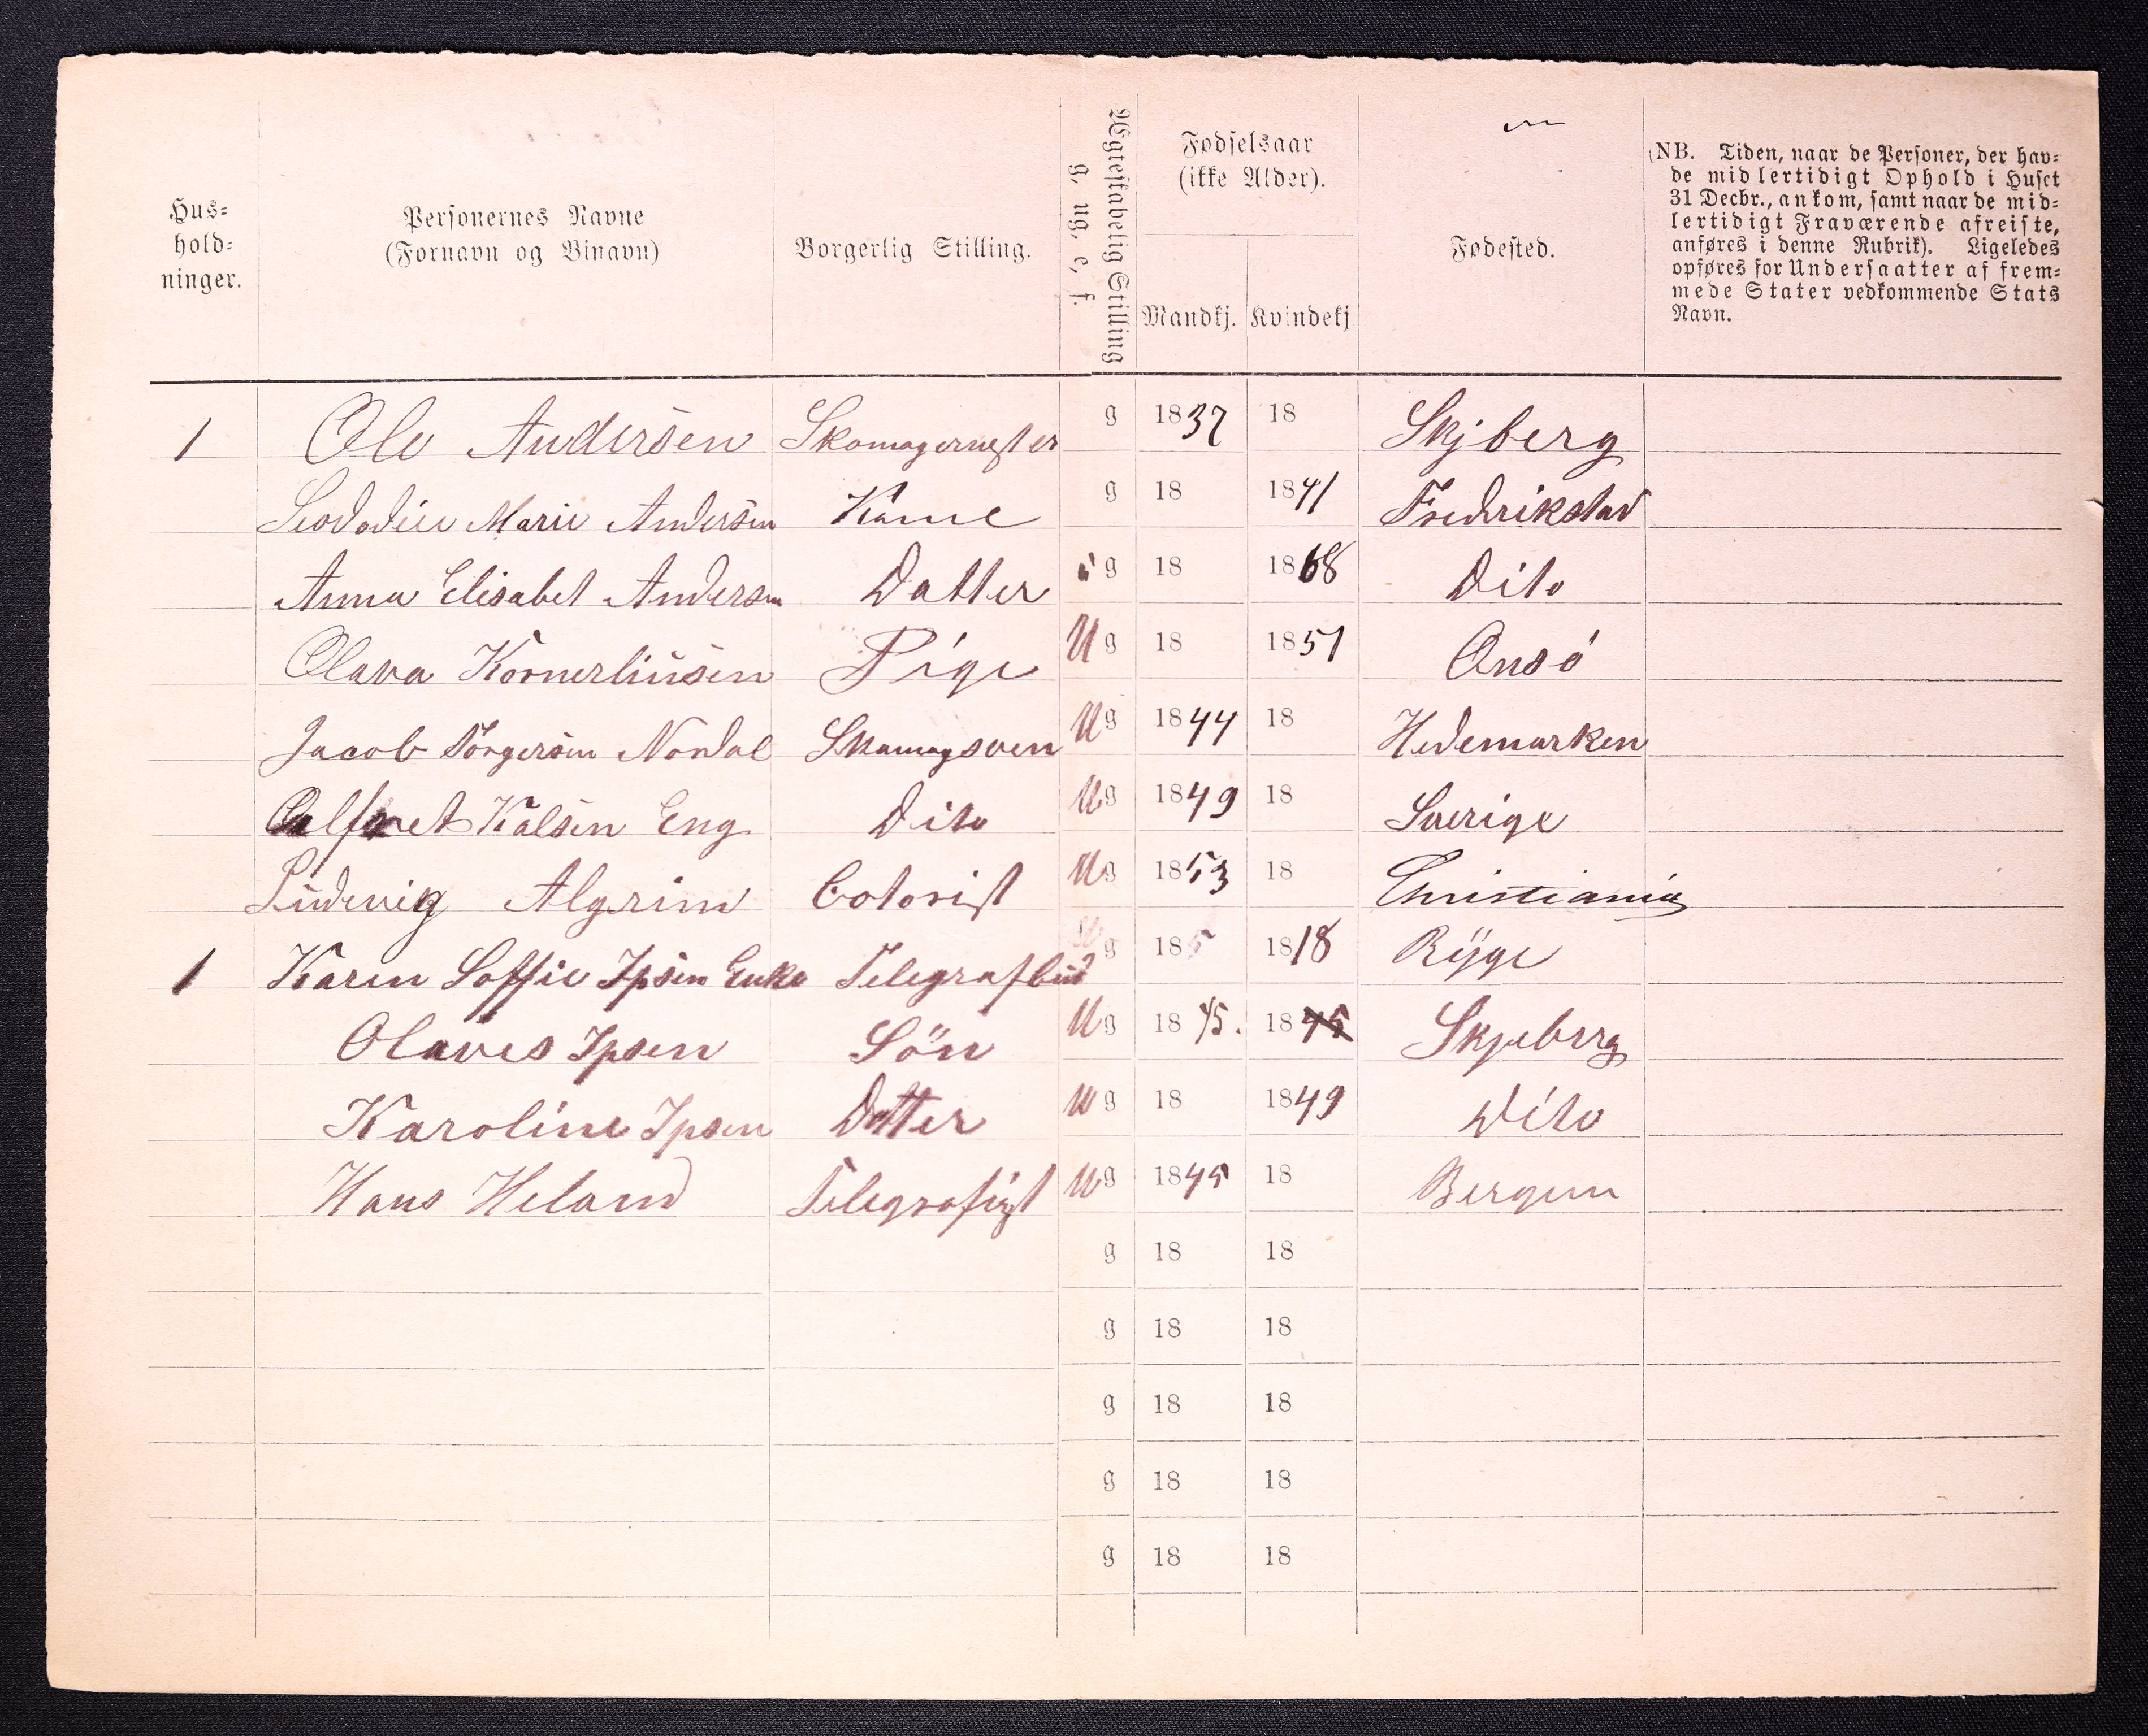 Hus-
hold-
ninger.
Personernes Navne
(Fornavn og Binavn)
Borgerlig Stilling.
Ægteskabelig Stilling
g, ug, e, f.
Fødselsaar
(ikke Alder).
Mandkj. Kvindekj
Fødested.
(NB. Tiden, naar de Personer, der hav-
de midlertidigt Ophold i Huset
31 Decbr., ankom, samt naar de mid-
lertidigt Fraværende afreiste,
anføres i denne Rubrik). Ligeledes
opføres for Undersaatter af frem-
mede Stater vedkommende Stats
Navn.
1 Ole Andersen Skomagermester g 1837 18 Skjberg
Marie Andersen Kone g 18 1841 Fredrikstad
Anna Elisabet Andersen Datter g 18 1868 Dito
Olava Kornerliusen Pige Ug 18 1851 Onsö
Jacob Torgersen Nordal Skomagsven Ug 1844 18 Hedemarken
Kalsen Eng Dito Ug 1849 18 Sverige
Ludevig Algrim Colorist Ug 1853 18 Christiania
1 Karen Soffie Ipsen Enke Telegrafbud g 185 1818 Rÿge
Olaves Ipsen Sön Ug 18 45. 1845 Skjeberg
Karoline Ipsen Datter ug 18 1849 Dito
Hans Heland Telegrafist ug 1845 18 Bergen
g 18 18
g 18 18
g 18 18
g 18 18
g 18 18